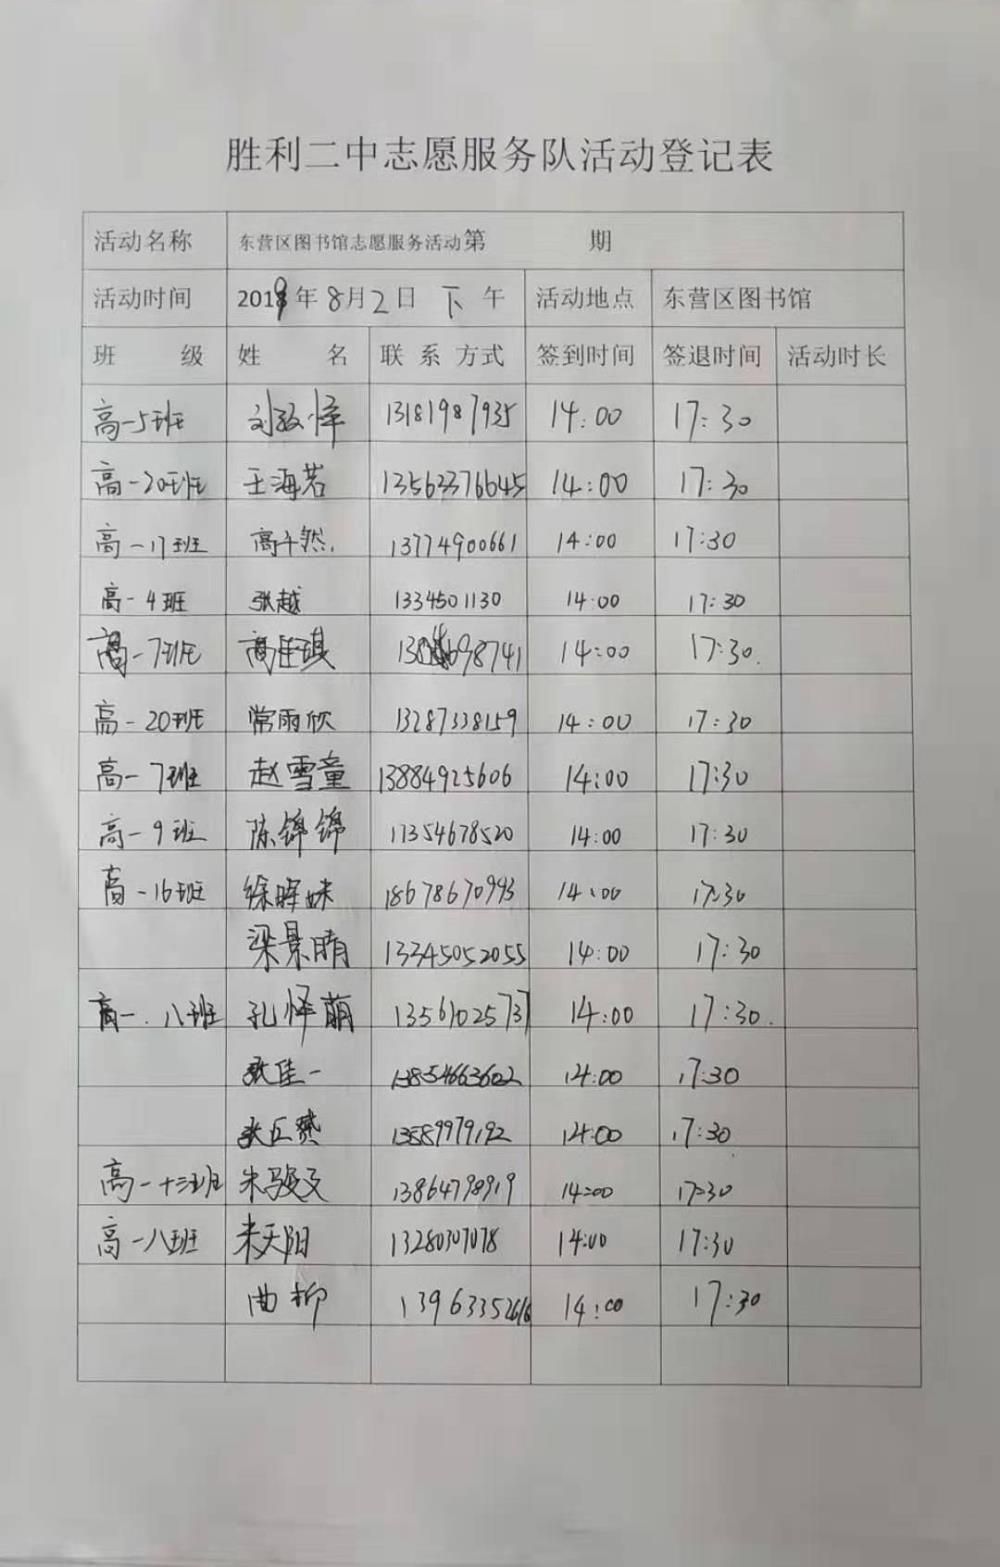 胜利二中志愿服务队活动登记表
活动名称 东营区图书馆志愿服务活动第 期
活动时间 2019年8月2日 下午 活动地点 东营区图书馆
班 级 姓 名 联系方式 签到时间 签退时间 活动时长
高一5班 13181987935 14:00 17:30
高一20班 王海若 13562376645 14:00 17:30
高一17班 高千然 13774900661 14:00 17:30
高一4班 张越 1334501130 14:00 17:30
高一7班 高佳琪 14:00 17:30
高一20班 常雨欣 13287338159 14:00 17:30
高一7班 赵雪童 13884925606 14:00 17:30
高一9班 陈锦锦 17354678520 14:00 17:30
高一16班 徐晖妹 18678670993 14:00 17:30
梁景晴 13345052055 14:00 17:30
高一.八班 孔怿萌 13561025737 14:00 17:30
张佳一 13854663602 14:00 17:30
13589979192 14:00 17:30
高一十三班 朱骏文 13864798919 14:00 17:30
高一八班 来天阳 13280307078 14:00 17:30
曲柳 14:00 17:30